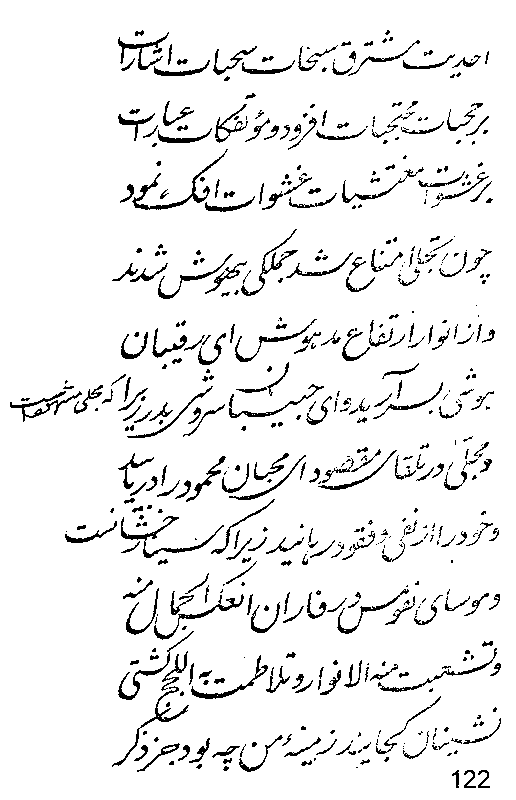 احدیت مشرق سبحات سبحات اشارات
بر حجبات محتجبات افزود و مؤتفکات عبارات
بر غشوات مغشیات غشوات افک نمود
چون تجلی امتناع شد جملگی بیهوش شدند
و از انوار ارتفاع مدهوش ای رقیبان
هوشی بسر آرید و ای حبیبان سروشی بدر زیرا که مجلی
و مجلّی در تلقای مقصود ای محبان محمود را دریابید
و خود را از نفی و فقود رهانید زیرا که سینا
و موسای نفوس در فاران انعک الجمال منه
و تشعبت منه الانوار و تلاطمت به اللجج کشتی
نشینان کجایند ز مینهٔ من چه بود جز ذکر
122